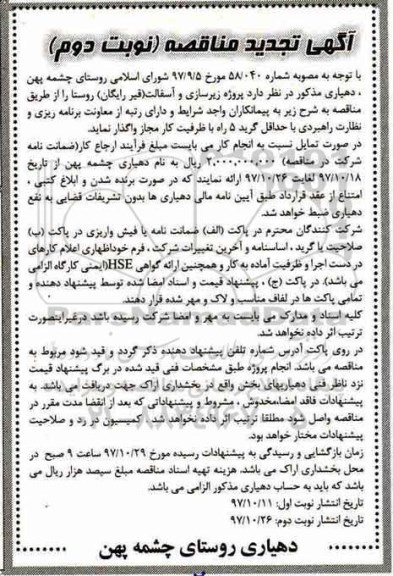 آگهی تجدید مناقصه (نوبت دوم)
با توجه به مصوبه شماره ۵۸/۰۴۰ مورخ ۹۷/۹/۵ شورای اسلامی روستای چشمه پهن
، دهیاری مذکور در نظر دارد پروژه زیرسازی و آسفالت(قیر رایگان) روستا را از طریق
مناقصه به شرح زیر به پیمانکاران واجد شرایط و دارای رتبه از معاونت برنامه ریزی و
نظارت راهبردی با حداقل گرید ۵ راه با ظرفیت کار مجاز واگذار نماید.
در صورت تمایل نسبت به انجام کار می بایست مبلغ فرآیند ارجاع کار(ضمانت نامه
شرکت در مناقصه) ریال به نام دهیاری چشمه پهن از تاریخ
۹۷/۱۰/۱۸ لغایت ۹۷/۱۰/۲۶ ارائه نمایند که در صورت برنده شدن و ابلاغ کتبی ،
امتناع از عقد قرارداد طبق آیین نامه مالی دهیاری ها بدون تشریفات قضایی به نفع
دهیاری ضبط خواهد شد.
شرکت کنندگان محترم در پاکت (الف) ضمانت نامه یا فیش واریزی در پاکت (ب)
صلاحیت یا گرید ، اساسنامه و آخرین تغییرات شرکت ، فرم خوداظهاری اعلام کارهای
در دست اجرا و ظرفیت آماده به کار و همچنین ارائه گواهی HSE(ایمنی کارگاه الزامی
می باشد). در پاکت (ج) ، پیشنهاد قیمت و اسناد امضا شده توسط پیشنهاد دهنده و
تمامی پاکت ها در لفاف مناسب و لاک و مهر شده قرار دهند.
کلیه اسناد و مدارک می بایست به مهر و امضا شرکت رسیده باشد درغیراینصورت
ترتیب اثر داده نخواهد شد.
در روی پاکت آدرس شماره تلفن پیشنهاد دهنده ذکر گردد و قید شود مربوط به
مناقصه می باشد. انجام پروژه طبق مشخصات فنی قید شده در برگ پیشنهاد قیمت
نزد ناظر فنی دهیاریهای بخش واقع در بخشداری اراک جهت دریافت می باشد. به
پیشنهادات فاقد امضا،مخدوش ، مشروط و پیشنهاداتی که بعد از انقضا مدت مقرر در
مناقصه واصل شود مطلقا ترتیب اثر داده نخواهد شد. کمیسیون در رد و صلاحیت
پیشنهادات مختار خواهد بود.
زمان بازگشایی و رسیدگی به پیشنهادات رسیده مورخ ۹۷/۱۰/۲۹ ساعت ۹ صبح در
محل بخشداری اراک می باشد. هزینه تهیه اسناد مناقصه مبلغ سیصد هزار ریال می
باشد که باید به حساب دهیاری مذکور الزامی می باشد.
تاریخ انتشار نوبت اول: ۹۷/۱۰/۱۱
تاریخ انتشار نوبت دوم: ۹۷/۱۰/۲۶
دهیاری روستای چشمه پهن